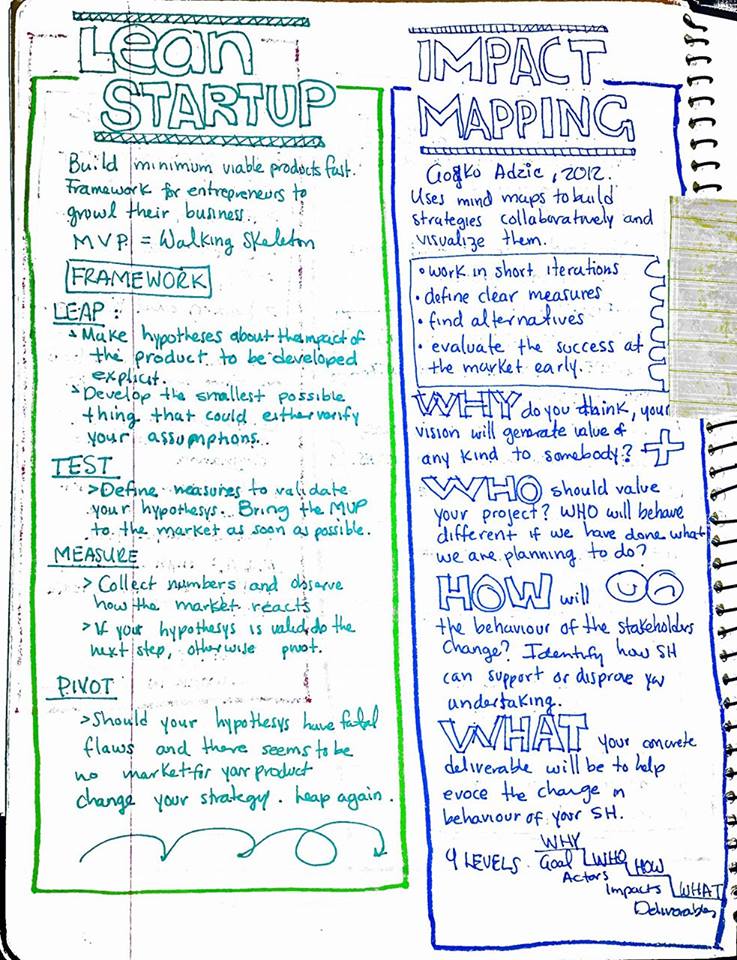 Lean
STARTUP
Build minimum viable products fast.
Framework for entrepreneurs to
growl their business..
MVP. = Walking Skeleton
FRAMEWORK
LEAP:
Make hypotheses about the impact of
the product to be developed
explicit.
Develop the smallest possible
thing that could either verify
your assumptions..
TEST
>Define measures to validate
your hypothesys.. Bring the MVP
to the market as soon as possible.
MEASURE
> Collect numbers and observe
how the market reacts
> If your hypothesys is valid, do the
next step, otherwise pivot.
PIVOT
>Should your hypothesys have fatal
flaws and there seems to be
no market for your product
change your strategy. Leap again.
IMPACT
MAPPING
Gojko Adzic, 2012.
Uses mind maps to build
strategies collaboratively and
visualize them.
• work in short iterations
• define clear measures
• find alternatives
• evaluate the success at
the market early.
WHY do you think, your
vision will generate value of
any kind to somebody?
WHO should value
your project? WHO will behave
different if we have done what
we are planning to do?
HOW will
the behaviour of the stakeholders
change? Identify how SH
can support or disprove your
undertaking.
WHAT your concrete
deliverable will be to help
evoce the change in
behaviour of your SH.
4 LEVELS. WHY
Goal WHO
Actors HOW
Impacts WHAT
Deliverables